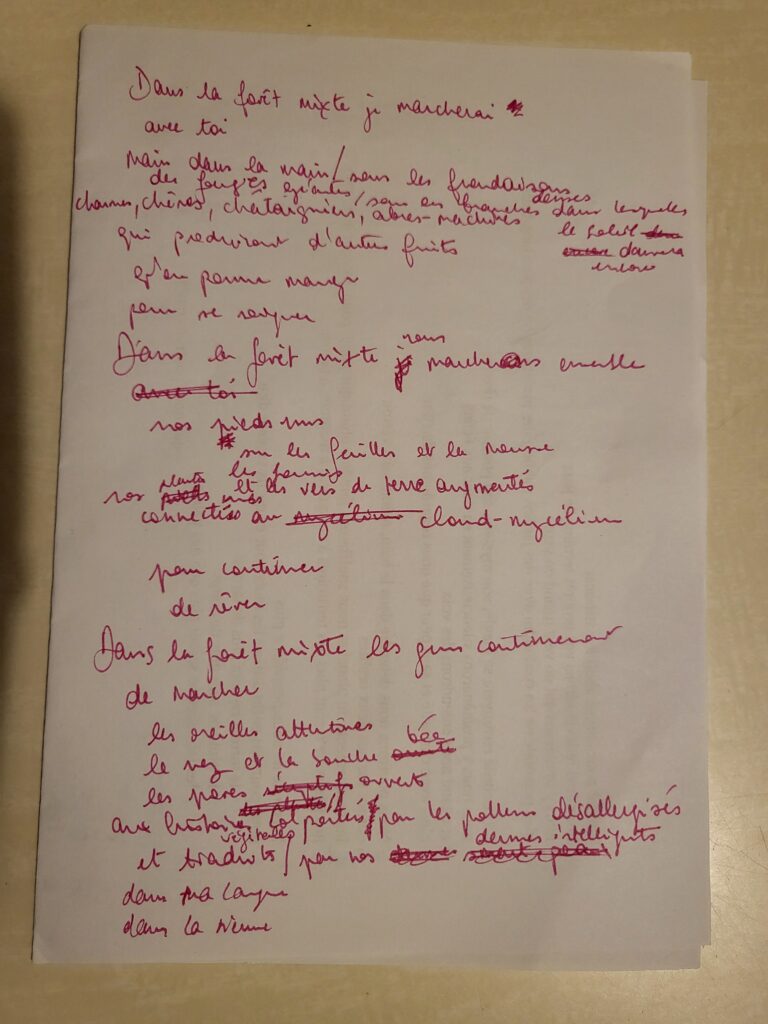 Dans la forêt mixte je marcherai
avec toi
main dans la main / sous les frondaisons
des fougères géantes / sous les branches denses dans lesquelles
charmes, chênes, châtaigniers, arbres-machines
le soleil dansera
encore
qui produiront d'autres fruits
qu'on pourra manger
pour se soigner
Dans la forêt mixte nous marcherons ensemble
avec toi
nos pieds nus
sur les feuilles et la mousse
les fourmis
nos plantes nues et les vers de terre augmentés
connectées au mycélium cloud-mycélium
pour continuer
de rêver
Dans la forêt mixte les gens continueront
de marcher
les oreilles attentives
le nez et la bouche bée
les pores ouverts
aux histoires végétales colportées / par les pollens désallergisés
et traduites / par nos dermes intelligents
dans ma langue
dans la tienne